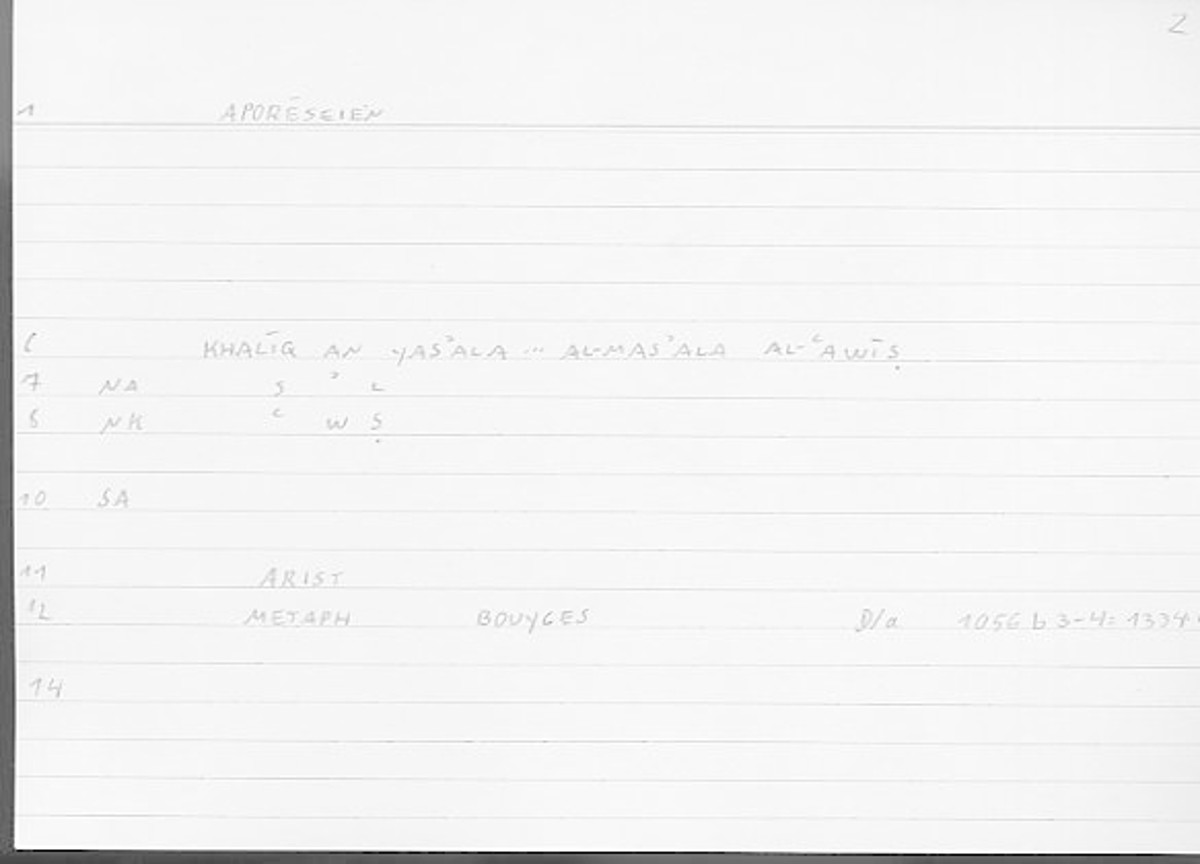 2
1 APORĒSEIEN
6 KHALĪQ AN YASʾALA ... AL-MASʾALA AL-ʿAWĪṢ
7 NA S ʾ L
8 NK ʿ W Ṣ
10 SA
11 ARIST
12 METAPH BOUYGES D/a 1056 b 3-4: 1334
14